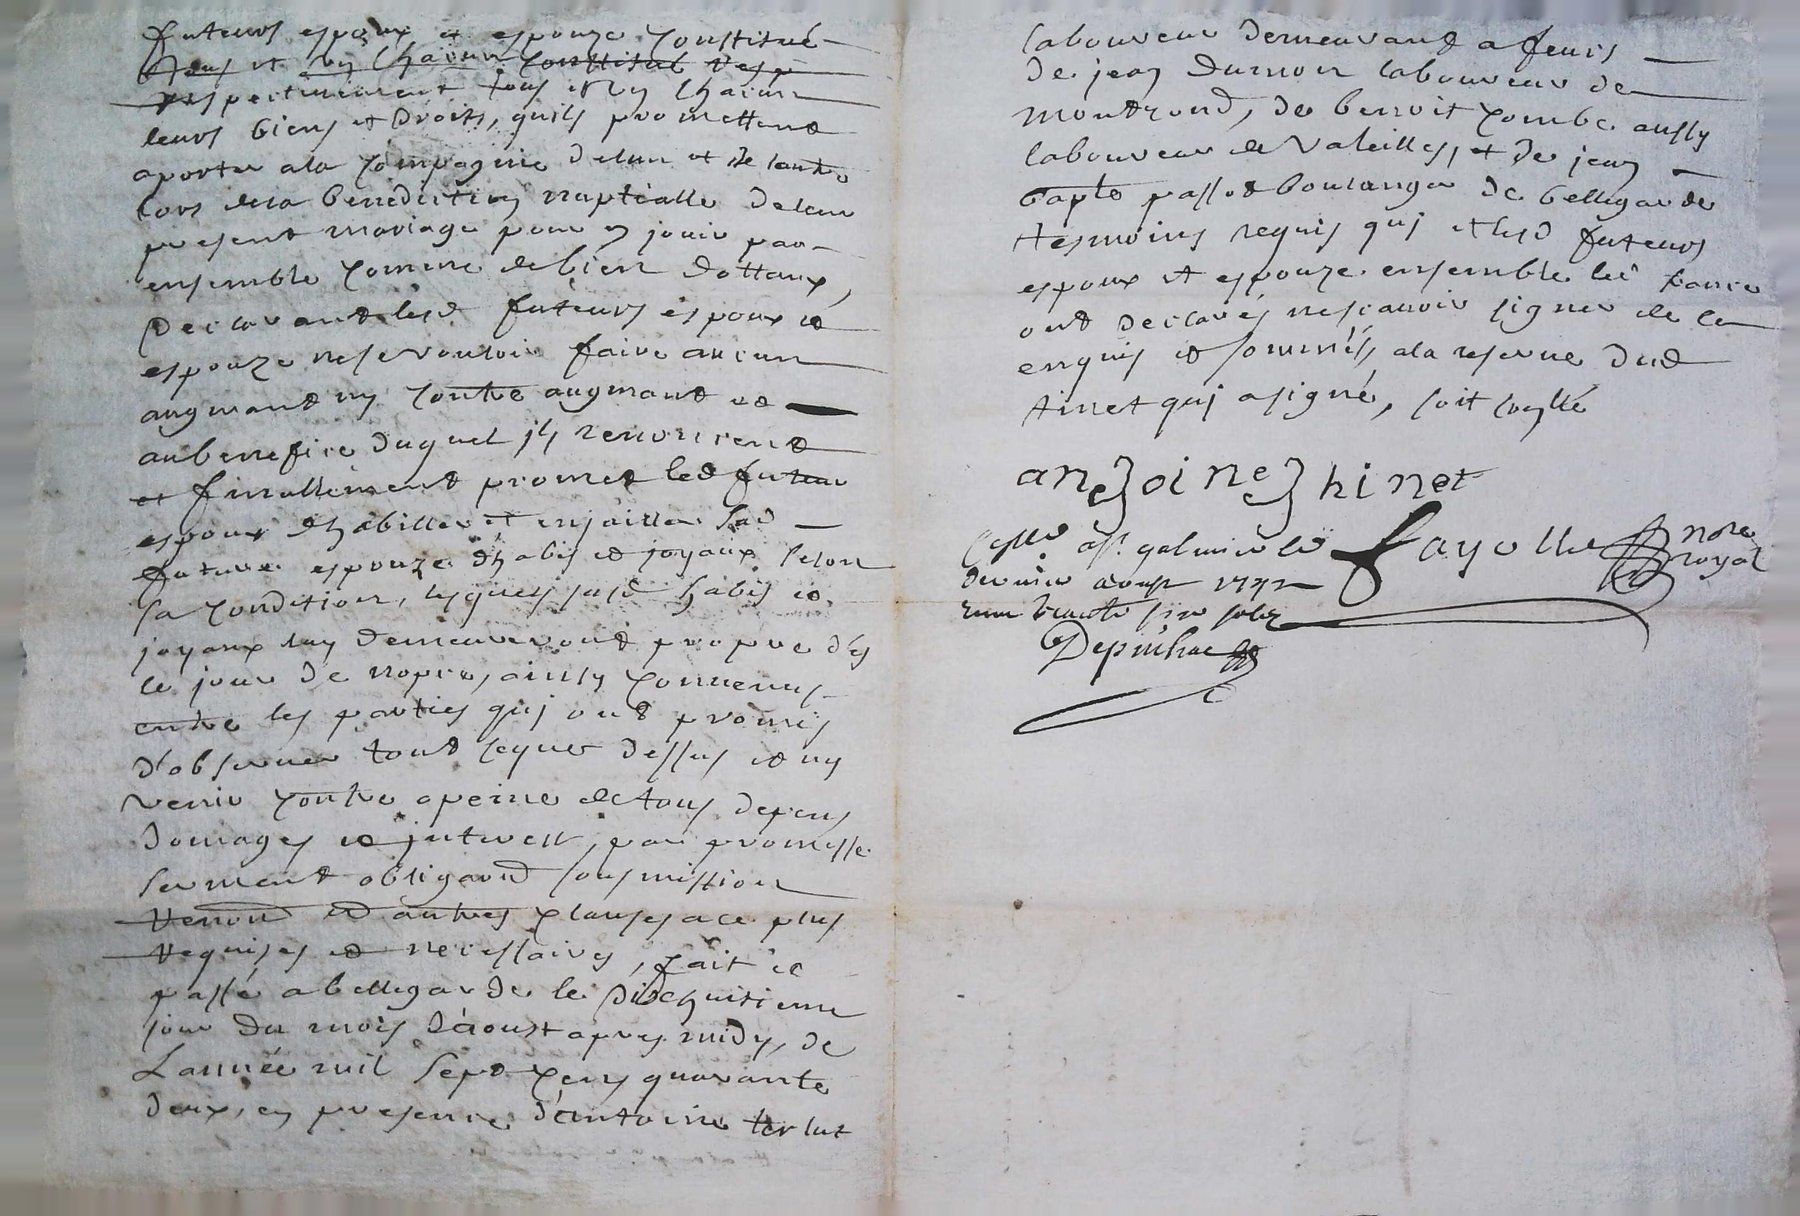 futeurs espoux et espouze constitué
tous et un chacun constitué resp
respectivement tous et un chacun
leurs biens et droits, quils promettent
aporter ala compagnie delun et de lautre
lors dela benediction nuptialle deleur
present mariage pour en jouir par
ensemble comme de bien dottaux,
declarant lesd futeurs espoux et
espouze nese vouloir faire aucun
augmant ny contre augmant et
aubenefice duquel ils renoncent
et finallement promet led futeur
espoux dhabiller et enjoailler sad
future espouze dhabis et joyaux selon
sa condition, lesquels susd habis et
joyaux luy demeureront propre dés
le jour de nopces, ainsy convenus
entre les parties quj ont promis
d'observer tout ceque dessus et ny
venir contre apeine detous depens
domages et jnterest, par promesse
serment obligaond sousmission
renond et autres clauses ace plus
requises et necessaires, fait et
passé abellegarde le dixhuitieme
jour du mois d'aoust apres midy, de
Lannée mil sept cens quarante
deux, en presence d'antoine
laboureur demeurand afeurs
de jean dumon laboureur de
montrond, de benoit combe aussy
laboureur de valeilles, et de jean
bapte passot boulanger de bellegarde
tesmoins requis quj et lesd futeurs
espoux et espouze ensemble lé
ont declarés nescavoir signer de ce
enquis et sommés, ala reserve dud
tinet quj asigné, soit scellé
antoine thinet
fayolle nore
royal
Scellé a st galmier le
dernier aoust 1742